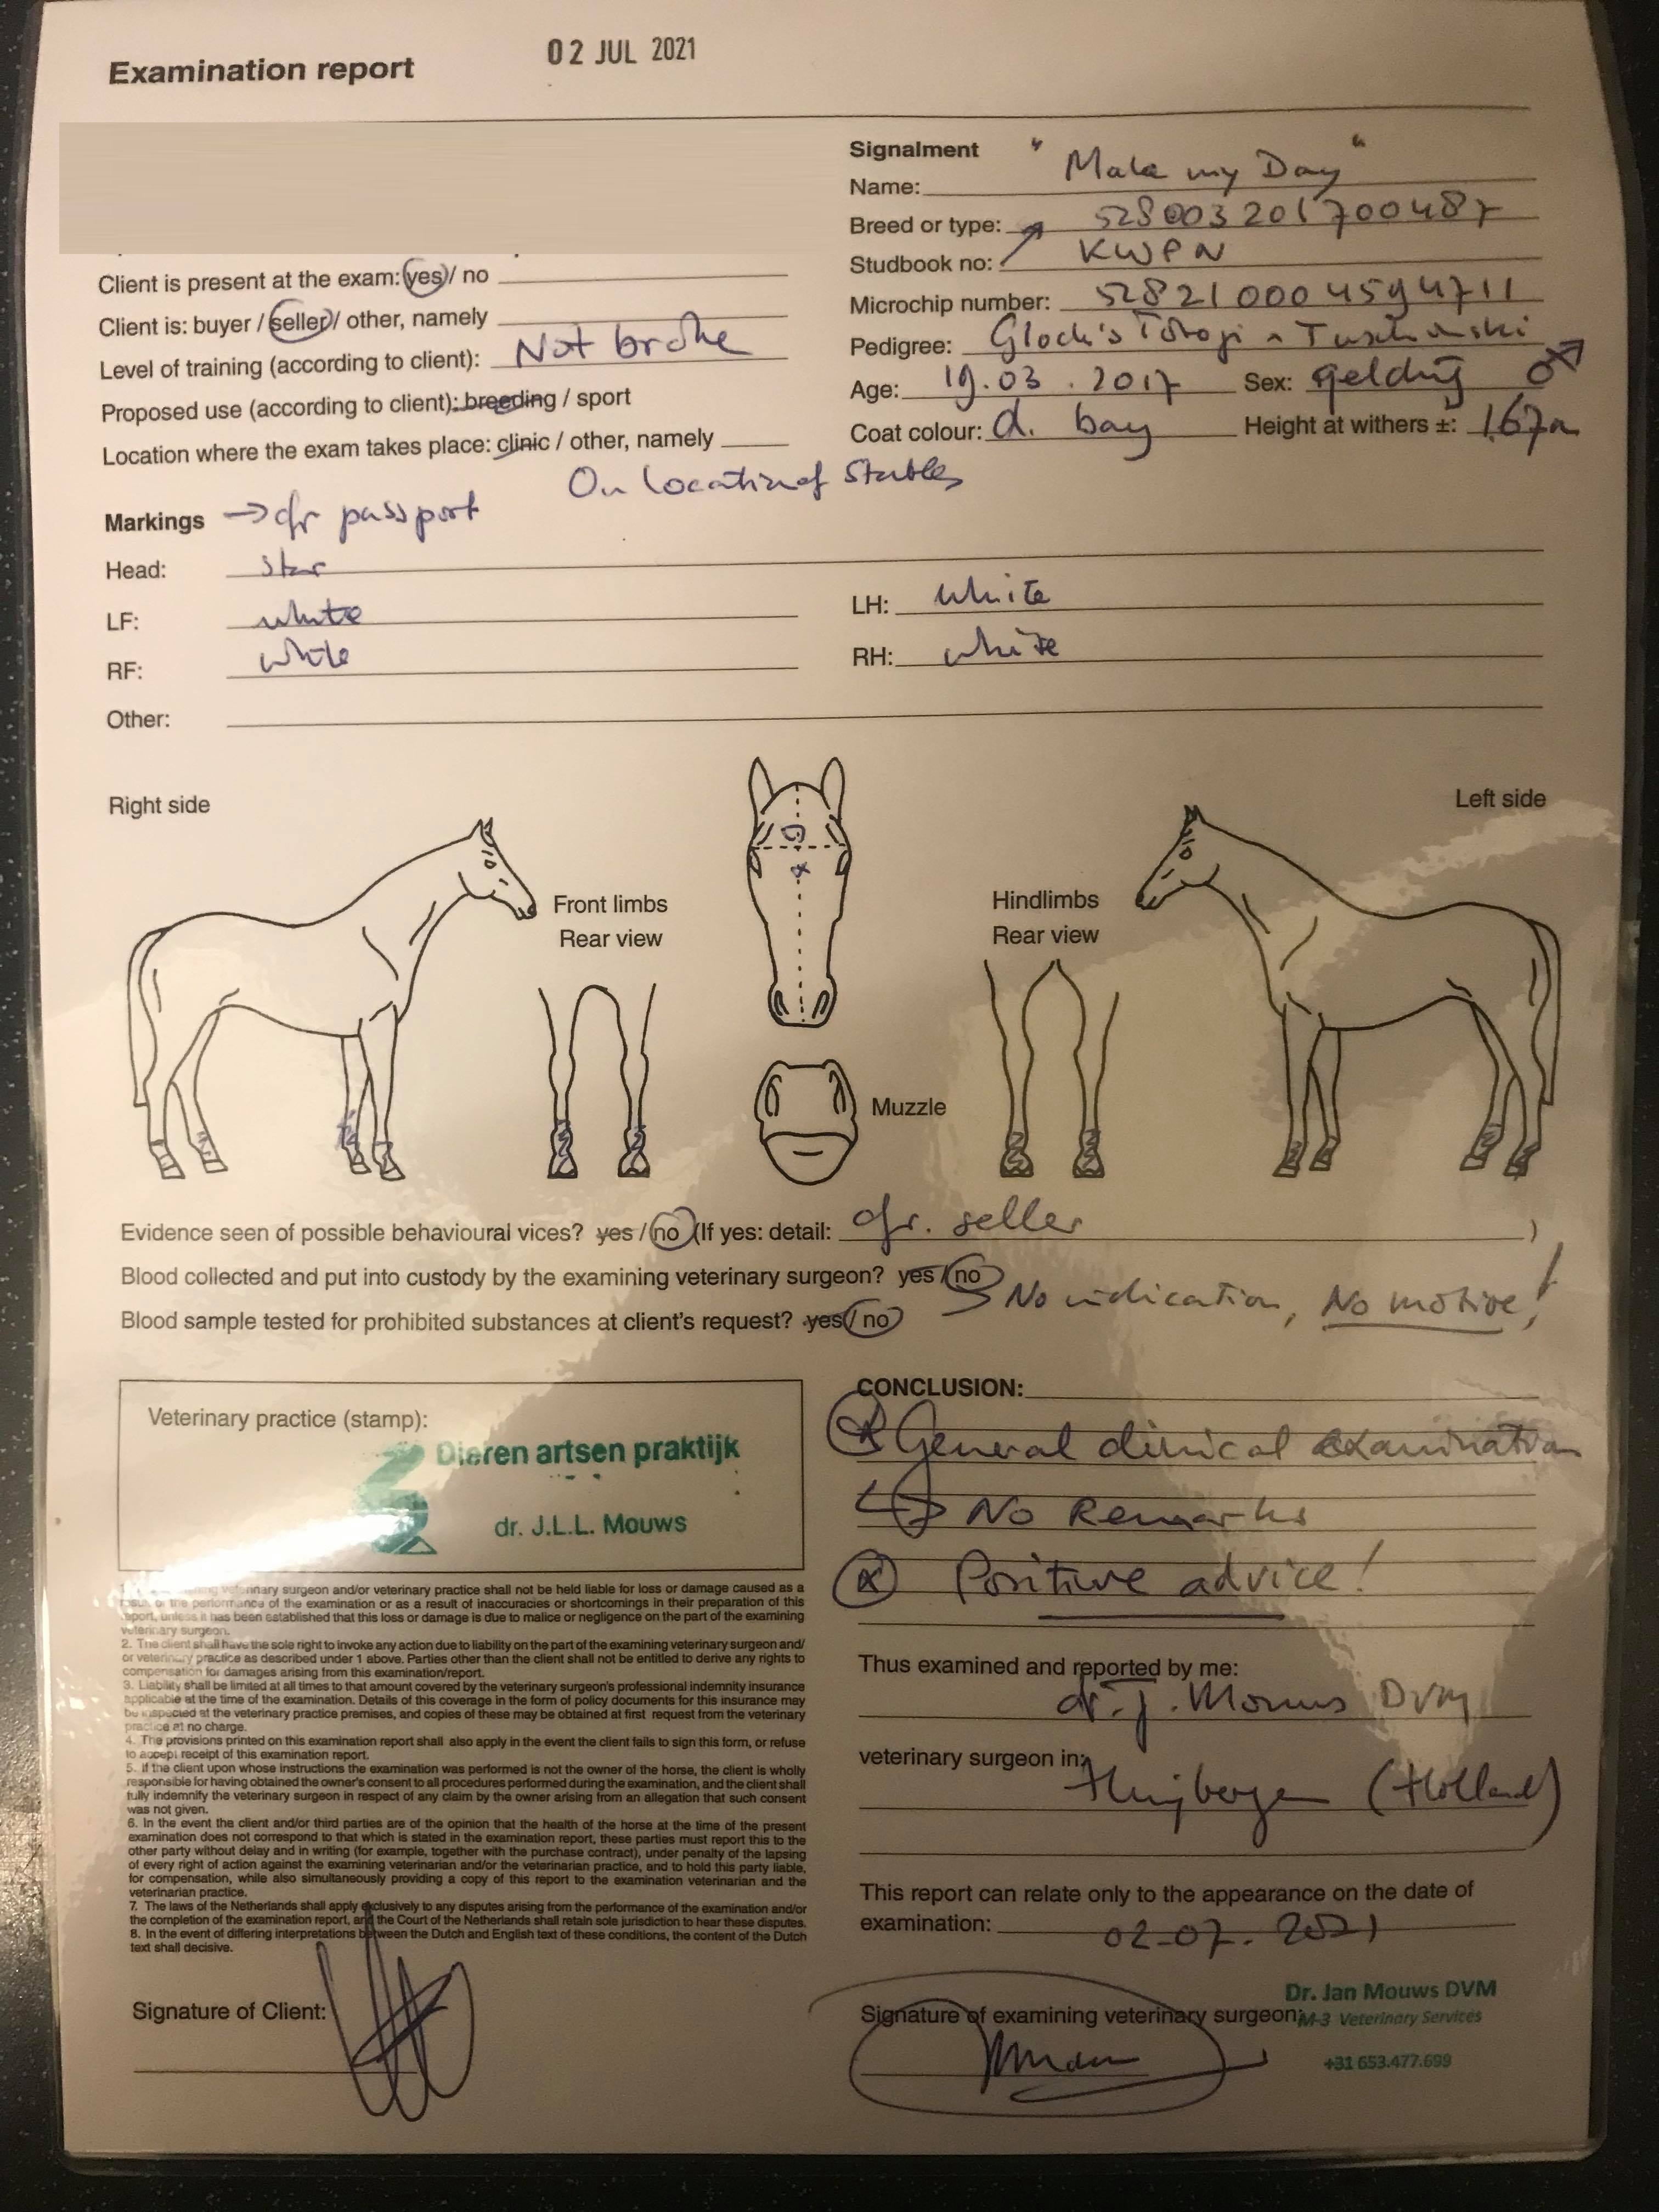 Examination report
02 JUL 2021
Client is present at the exam: yes / no
Client is: buyer / seller / other, namely
Level of training (according to client): Not broke
Proposed use (according to client): breeding / sport
Location where the exam takes place: clinic / other, namely
On location of Stables
Signalment
Name: "Make my Day"
Breed or type: 528003201700487
Studbook no: KWPN
Microchip number: 528210004594711
Pedigree: Glock's Totogi
Age: 19.03.2017 Sex: gelding ♂
Coat colour: d. bay Height at withers ±: 1.67m
Markings → cfr passport
Head: star
LF: white
LH: white
RF: white
RH: white
Other:
Right side
Left side
Front limbs
Rear view
Hindlimbs
Rear view
Muzzle
Evidence seen of possible behavioural vices? yes / no (If yes: detail: cfr. seller )
Blood collected and put into custody by the examining veterinary surgeon? yes / no
Blood sample tested for prohibited substances at client's request? yes / no
No indication, No motive!
Veterinary practice (stamp):
Dieren artsen praktijk
dr. J.L.L. Mouws
CONCLUSION:
General clinical examination
No Remarks
Positive advice!
veterinary surgeon and/or veterinary practice shall not be held liable for loss or damage caused as a
result of the performance of the examination or as a result of inaccuracies or shortcomings in their preparation of this
report, unless it has been established that this loss or damage is due to malice or negligence on the part of the examining
veterinary surgeon.
2. The client shall have the sole right to invoke any action due to liability on the part of the examining veterinary surgeon and/
or veterinary practice as described under 1 above. Parties other than the client shall not be entitled to derive any rights to
compensation for damages arising from this examination/report.
3. Liability shall be limited at all times to that amount covered by the veterinary surgeon's professional indemnity insurance
applicable at the time of the examination. Details of this coverage in the form of policy documents for this insurance may
be inspected at the veterinary practice premises, and copies of these may be obtained at first request from the veterinary
practice at no charge.
4. The provisions printed on this examination report shall also apply in the event the client fails to sign this form, or refuse
to accept receipt of this examination report.
5. If the client upon whose instructions the examination was performed is not the owner of the horse, the client is wholly
responsible for having obtained the owner's consent to all procedures performed during the examination, and the client shall
fully indemnify the veterinary surgeon in respect of any claim by the owner arising from an allegation that such consent
was not given.
6. In the event the client and/or third parties are of the opinion that the health of the horse at the time of the present
examination does not correspond to that which is stated in the examination report, these parties must report this to the
other party without delay and in writing (for example, together with the purchase contract), under penalty of the lapsing
of every right of action against the examining veterinarian and/or the veterinarian practice, and to hold this party liable,
for compensation, while also simultaneously providing a copy of this report to the examination veterinarian and the
veterinarian practice.
7. The laws of the Netherlands shall apply exclusively to any disputes arising from the performance of the examination and/or
the completion of the examination report, and the Court of the Netherlands shall retain sole jurisdiction to hear these disputes.
8. In the event of differing interpretations between the Dutch and English text of these conditions, the content of the Dutch
text shall decisive.
Thus examined and reported by me:
dr. J. Mouws DVM
veterinary surgeon in:
Huijbergen (Holland)
This report can relate only to the appearance on the date of
examination: 02-07-2021
Signature of Client:
Signature of examining veterinary surgeon:
Dr. Jan Mouws DVM
M-3 Veterinary Services
+31 653.477.699